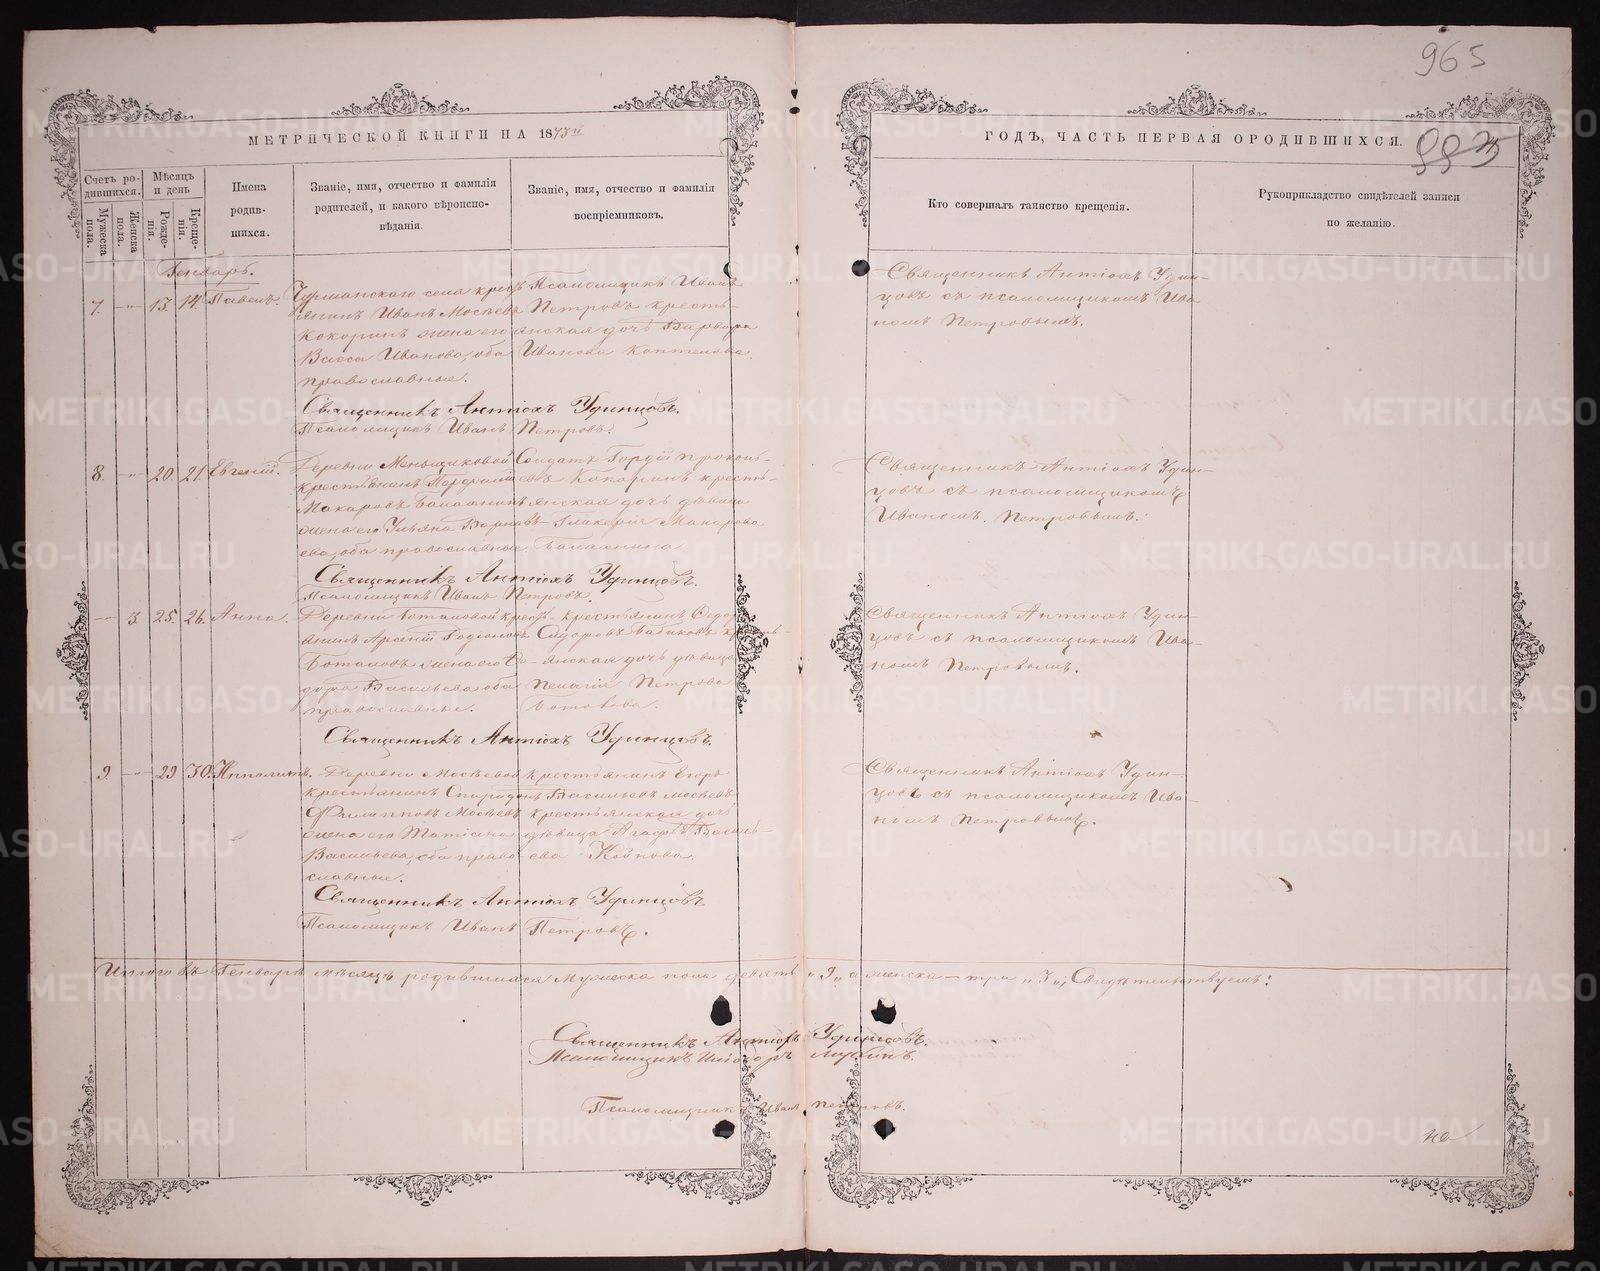 965
МЕТРИЧЕСКОЙ КНИГИ НА 1873й
ГОДЪ, ЧАСТЬ ПЕРВАЯ ОРОДИВШИХСЯ.
Счетъ ро-
дившихся.
Мужеска
пола.
Женска
пола.
Мѣсяцъ
и день
Рожде-
нія.
Креще-
нія.
Имена
родив-
шихся.
Званіе, имя, отчество и фамилія
родителей, и какого вѣроиспо-
вѣданія.
Званіе, имя, отчество и фамилія
воспріемниковъ.
Кто совершалъ таинство крещенія.
Рукоприкладство свидѣтелей записи
по желанію.
Генварь.
7. 13. 14. Павелъ.
села крест-
янинъ Иванъ Мосѣевъ
Кокоринъ жена его
Васса Иванова, оба
православные.
Псаломщикъ Иванъ
Петровъ кресть-
янская дочь Варвара
Иванова Коптелова.
Священникъ Антіохъ Удин-
цовъ съ псаломщикомъ Ива-
номъ Петровымъ.
Священникъ Антіохъ Удинцовъ.
Псаломщикъ Иванъ Петровъ.
8. 20. 21. Евгеній.
Деревни Меньщиковой
крестьянинъ
Макаровъ Балакинъ
жена его Ульяна Варнав-
ева, оба православные.
Солдатъ Гордій Прокопь-
евъ Кокоринъ кресть-
янская дочь дѣвица
Гликерія Макарова
Балакина
Священникъ Антіохъ Удин-
цовъ съ псаломщикомъ
Иваномъ Петровымъ.
Священникъ Антіохъ Удинцовъ.
Псаломщикъ Иванъ Петровъ.
3. 25. 26. Анна.
Деревни Боталовой крест-
янинъ Арсеній Родіоновъ
Боталовъ жена его Ѳе-
дора Васильева оба
православные.
крестьянинъ
Сидоровъ
янская дочь дѣвица
Пелагія Петрова
Священникъ Антіохъ Удин-
цовъ съ псаломщикомъ Ива-
номъ Петровымъ.
Священникъ Антіохъ Удинцовъ.
9. 29 30. Ипполитъ.
Деревни Мосѣевой
крестьянинъ Спиридонъ
Филипповъ Мосѣевъ
жена его Татіана
Васильева, оба право-
славные.
крестьянинъ Егоръ
Васильевъ Мосѣевъ
крестьянская дочь
дѣвица Агафья Василь-
ева
Священникъ Антіохъ Удин-
цовъ съ псаломщикомъ Ива-
номъ Петровымъ.
Священникъ Антіохъ Удинцовъ
Псаломщикъ Иванъ Петровъ.
Итого въ Генварѣ мѣсяцѣ родившихся мужеска пола девять „9„ а женска - три „3„, Свидѣтельствуемъ:
Священникъ Антіохъ Удинцовъ.
Псаломщикъ
Псаломщикъ Иванъ Петровъ.
METRIKI.GASO-URAL.RU